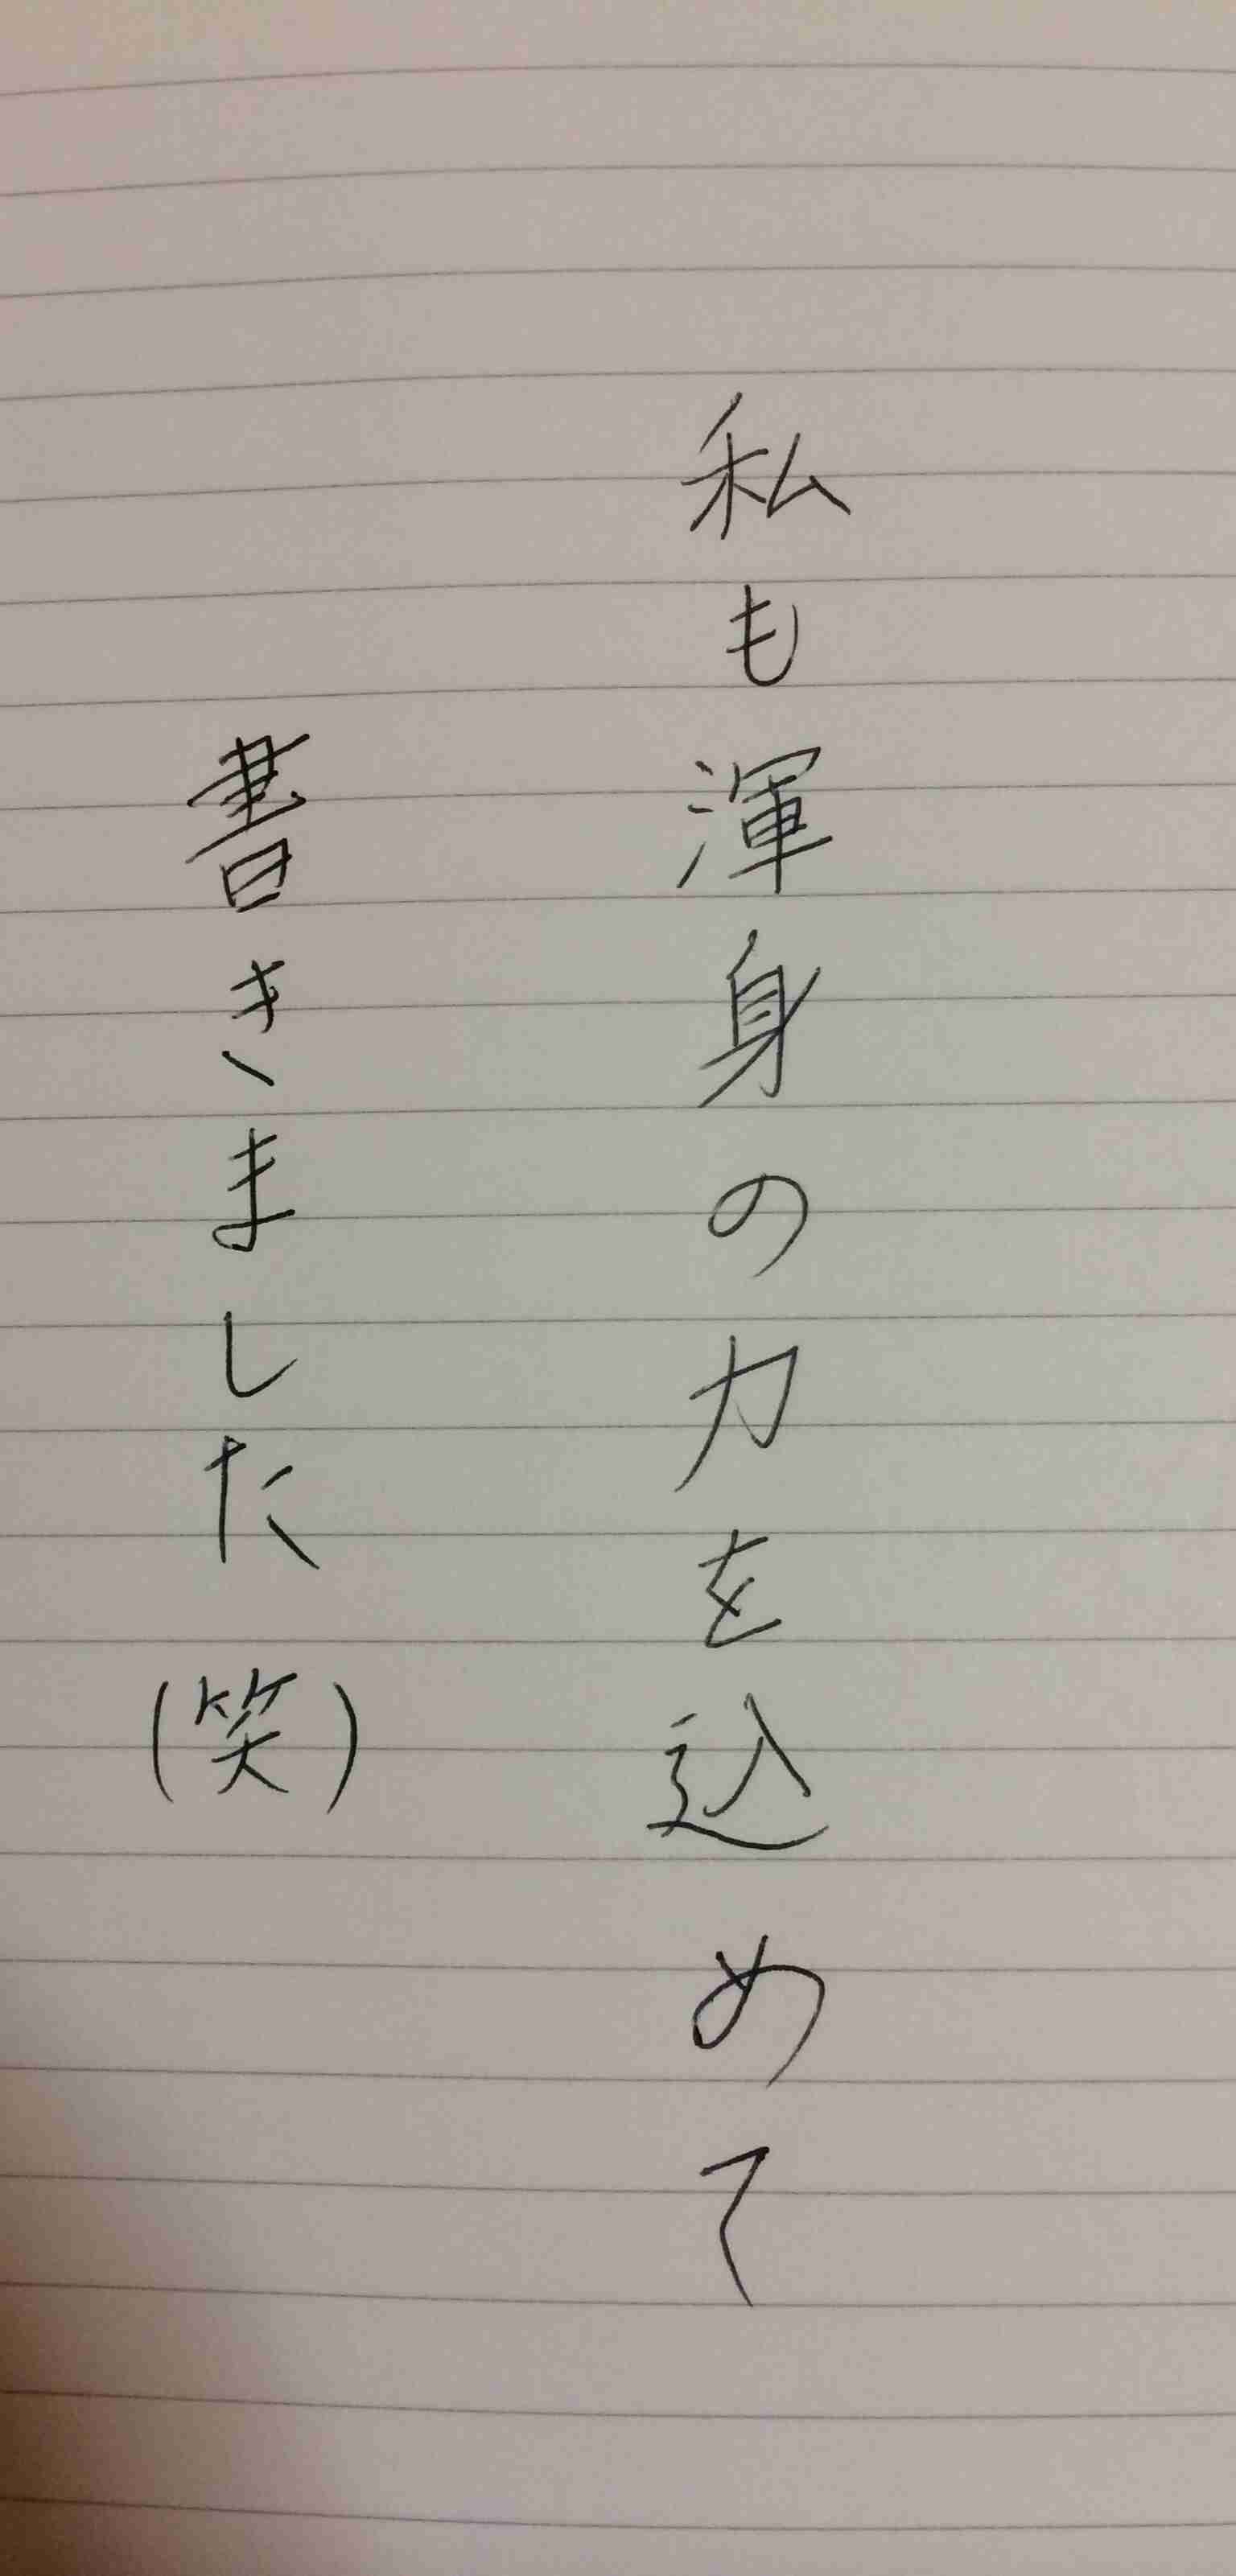 私も渾身の力を込めて
書きました(笑)